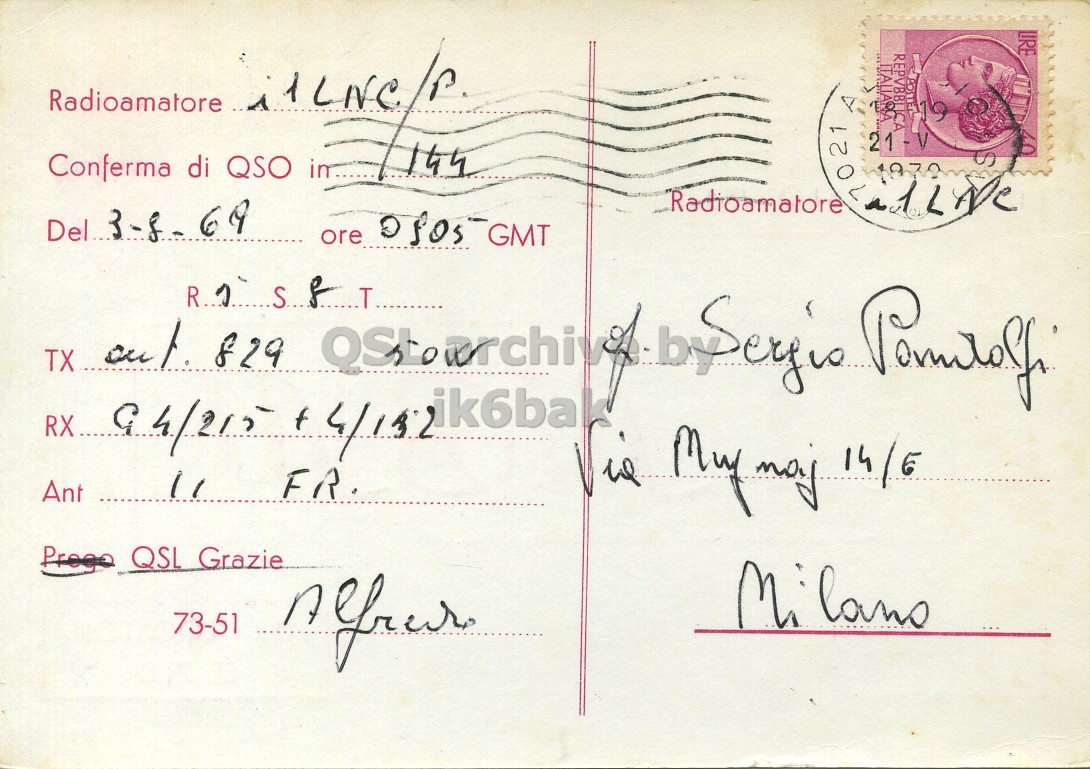 Radioamatore i1LNC/P.
Conferma di QSO in 144
Del 3-8-69 ore 0805 GMT
R 5 S 8 T
TX aut. 829 50W
RX G4/215 + 4/152
Ant 11 FR.
Prego QSL Grazie
73-51 Alfredo
QSL archive by
ik6bak
LIRE
REPVBBLICA
ITALIANA
18-19
21-V
Radioamatore i1LNC
Sergio Pandolfi
Via 14/6
Milano